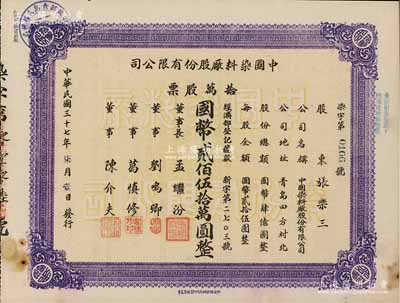 中國染料廠股份有限公司
染字第0166號
股東張棨三
公司名稱 中國染料廠股份有限公司
公司地址 青島四方村北
股份總額 國幣肆億圓整
每股金額 國幣貳拾伍圓整
經濟部登記證號 新字第二七〇三號
拾萬股票
國幣貳佰伍拾萬圓整
董事長 孟繼汾
董事 劉鳴卿
董事 葛慎修
董事 陳介夫
中華民國三十七年 月 日發行